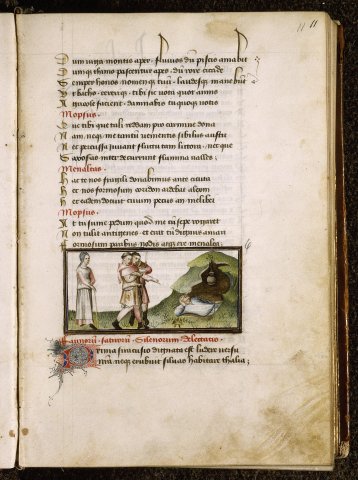 11 11
Dum iuga montis aper fluuios dum piscis amabit
Dumque thimo pascentur apes dum rore cicade
Semper honos nomenque tuum laudesque manebunt
Vt bacho cererique tibi sic uota quot annis
Agricole facient damnabis tu quoque uotis
Mopsus.
Que tibi que tali reddam pro carmine dona
Nam neque me tantum uenientis sibilus austri
Nec percussa iuuant fluctu tam littora nec que
Saxosas inter decurrunt flumina ualles
Menalcas.
Hac te nos fragili donabimus ante cicuta
Hec nos formosum coridon ardebat alexim
Hec eadem docuit cuium pecus an melibei
Mopsus.
At tu sume pedum quod me cum sepe rogaret
Non tulit antigenes et erat tum dignus amari
Formosum paribus nodis atque ere menalca
Faunorum satirorum Silenorum delectatio
Prima siracusio dignata est ludere uersu
Nostra neque erubuit siluas habitare thalia